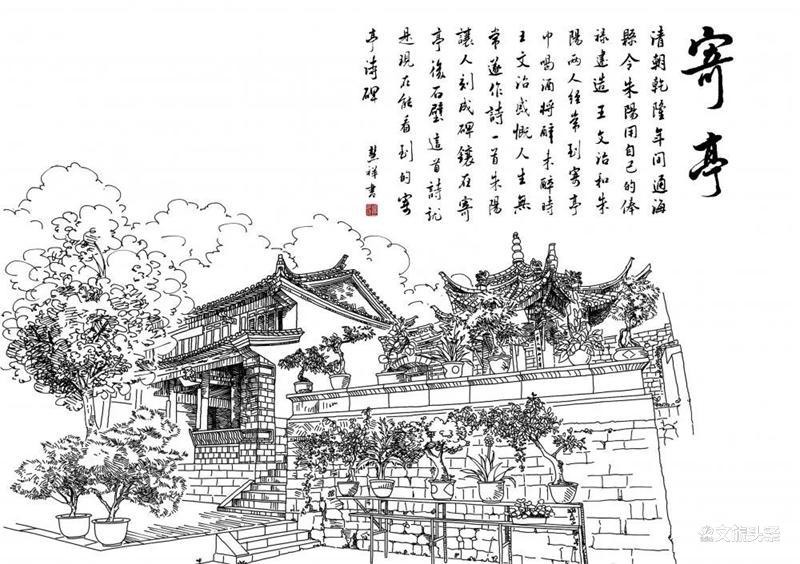 寄亭
清朝乾隆年间通海
縣令朱陽用自己的俸
禄建造王文治和朱
陽两人经常到寄亭
中喝酒将醉未醉時
王文治感慨人生無
常遂作詩一首朱陽
讓人刻成碑鑲在寄
亭後石壁這首詩就
是现在能看到的寄
亭诗碑
祥書
文旅头条